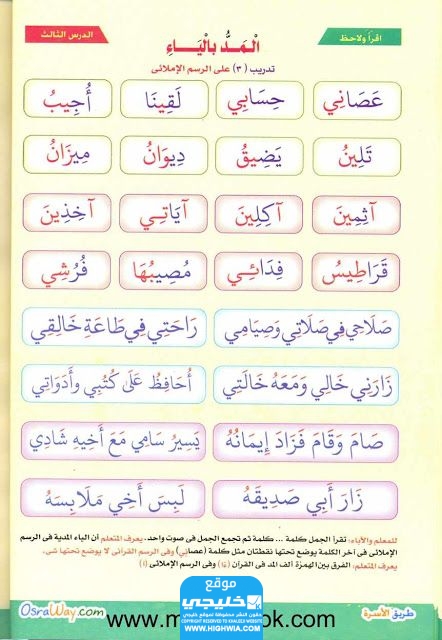 اقرأ ولاحظ
الدرس الثالث
الْمَدُّ بِالْيَاءِ
تدريب (٣) على الرسم الإملائى
عَصَانِي حِسَابِي لَقِينَا أُجِيبُ
تَلِينُ يَضِيقُ دِيوَانُ مِيزَانُ
آثِمِينَ آكِلِينَ آيَاتِي آخِذِينَ
قَرَاطِيسُ فِدَائِي مُصِيبُهَا فُرُشِي
صَلَاحِي فِي صَلَاتِي وَصِيَامِي رَاحَتِي فِي طَاعَةِ خَالِقِي
زَارَنِي خَالِي وَمَعَهُ خَالَتِي أُحَافِظُ عَلَى كُتُبِي وَأَدَوَاتِي
صَامَ وَقَامَ فَزَادَ إِيمَانُهُ يَسِيرُ سَامِي مَعَ أَخِيهِ شَادِي
زَارَ أَبِي صَدِيقَهُ لَبِسَ أَخِي مَلَابِسَهُ
للمعلم والأباء: تقرأ الجمل كلمة ... كلمة ثم تجمع الجمل فى صوت واحد، يعرف المتعلم أن الياء المدية فى الرسم
الإملائى فى آخر الكلمة يوضع تحتها نقطتان مثل كلمة (عصانِي) وفى الرسم القرآنى لا يوضع تحتها شى،
يعرف المتعلم: الفرق بين الهمزة ألف المد فى القرآن وفى الرسم الإملائى (آ)
طريق الأسرة
OsraWay.com
موقع
خليجي
حقوق النشر محفوظة لموقع خليجي
COPYRIGHTS RESERVED TO KHALEEJI WEBSITE
WWW.HIGHWIA.COM